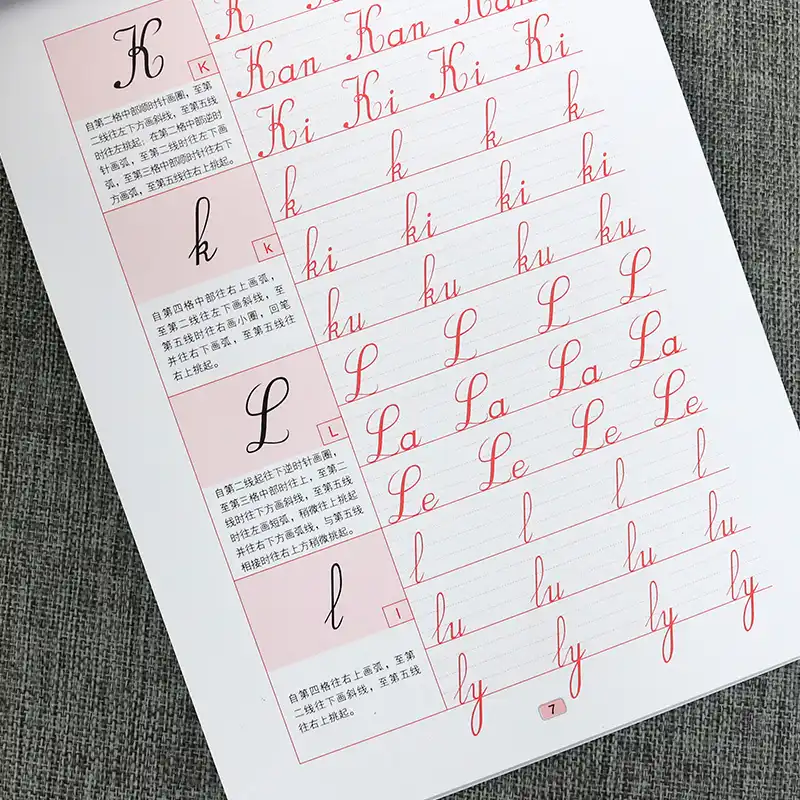 K
K
自第二格中部顺时针画圈，至第
二线往左下方画斜线，至第五线
时往左挑起；在第二格中部逆时
针画弧，至第二线时往左下画
弧，至第三格中部顺时针往右下
方画弧，至第五线往右上挑起。
K
Kan Kan Kan
Ki Ki Ki Ki
k
k
自第四格中部往右上画弧，
至第二线往左下画斜线，至
第五线时往右画小圈，回笔
并往右下画弧，至第五线往
右上挑起。
k k k k
ki ki ki ki
ku ku ku ku
L
L
自第二线起往下逆时针画圈，
至第三格中部时往上，至第二
线时往下方画斜线，至第五线
时往左画短弧，稍微往上挑起
并往右下方画弧线，与第五线
相接时往右上方稍微挑起。
L L L L
La La La La
Le Le Le Le
l
l
自第四格往右上画弧，至第
二线往左下画斜线，至第五线
往右上挑起。
l l l l
lu lu lu lu
ly ly ly ly
7